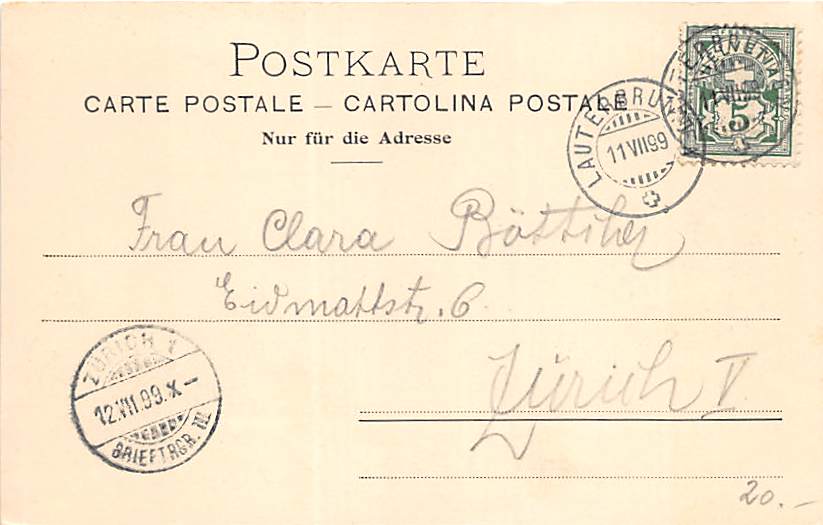 POSTKARTE
CARTE POSTALE — CARTOLINA POSTALE
Nur für die Adresse
LAUTERBRUNNEN
11 VII 99
HELVETIA
5
Frau Clara Böttiher
Eidmattstr. 6
Zürich V
ZÜRICH 1
12.VII.99.X–
BRIEFTRGR. III
20.–